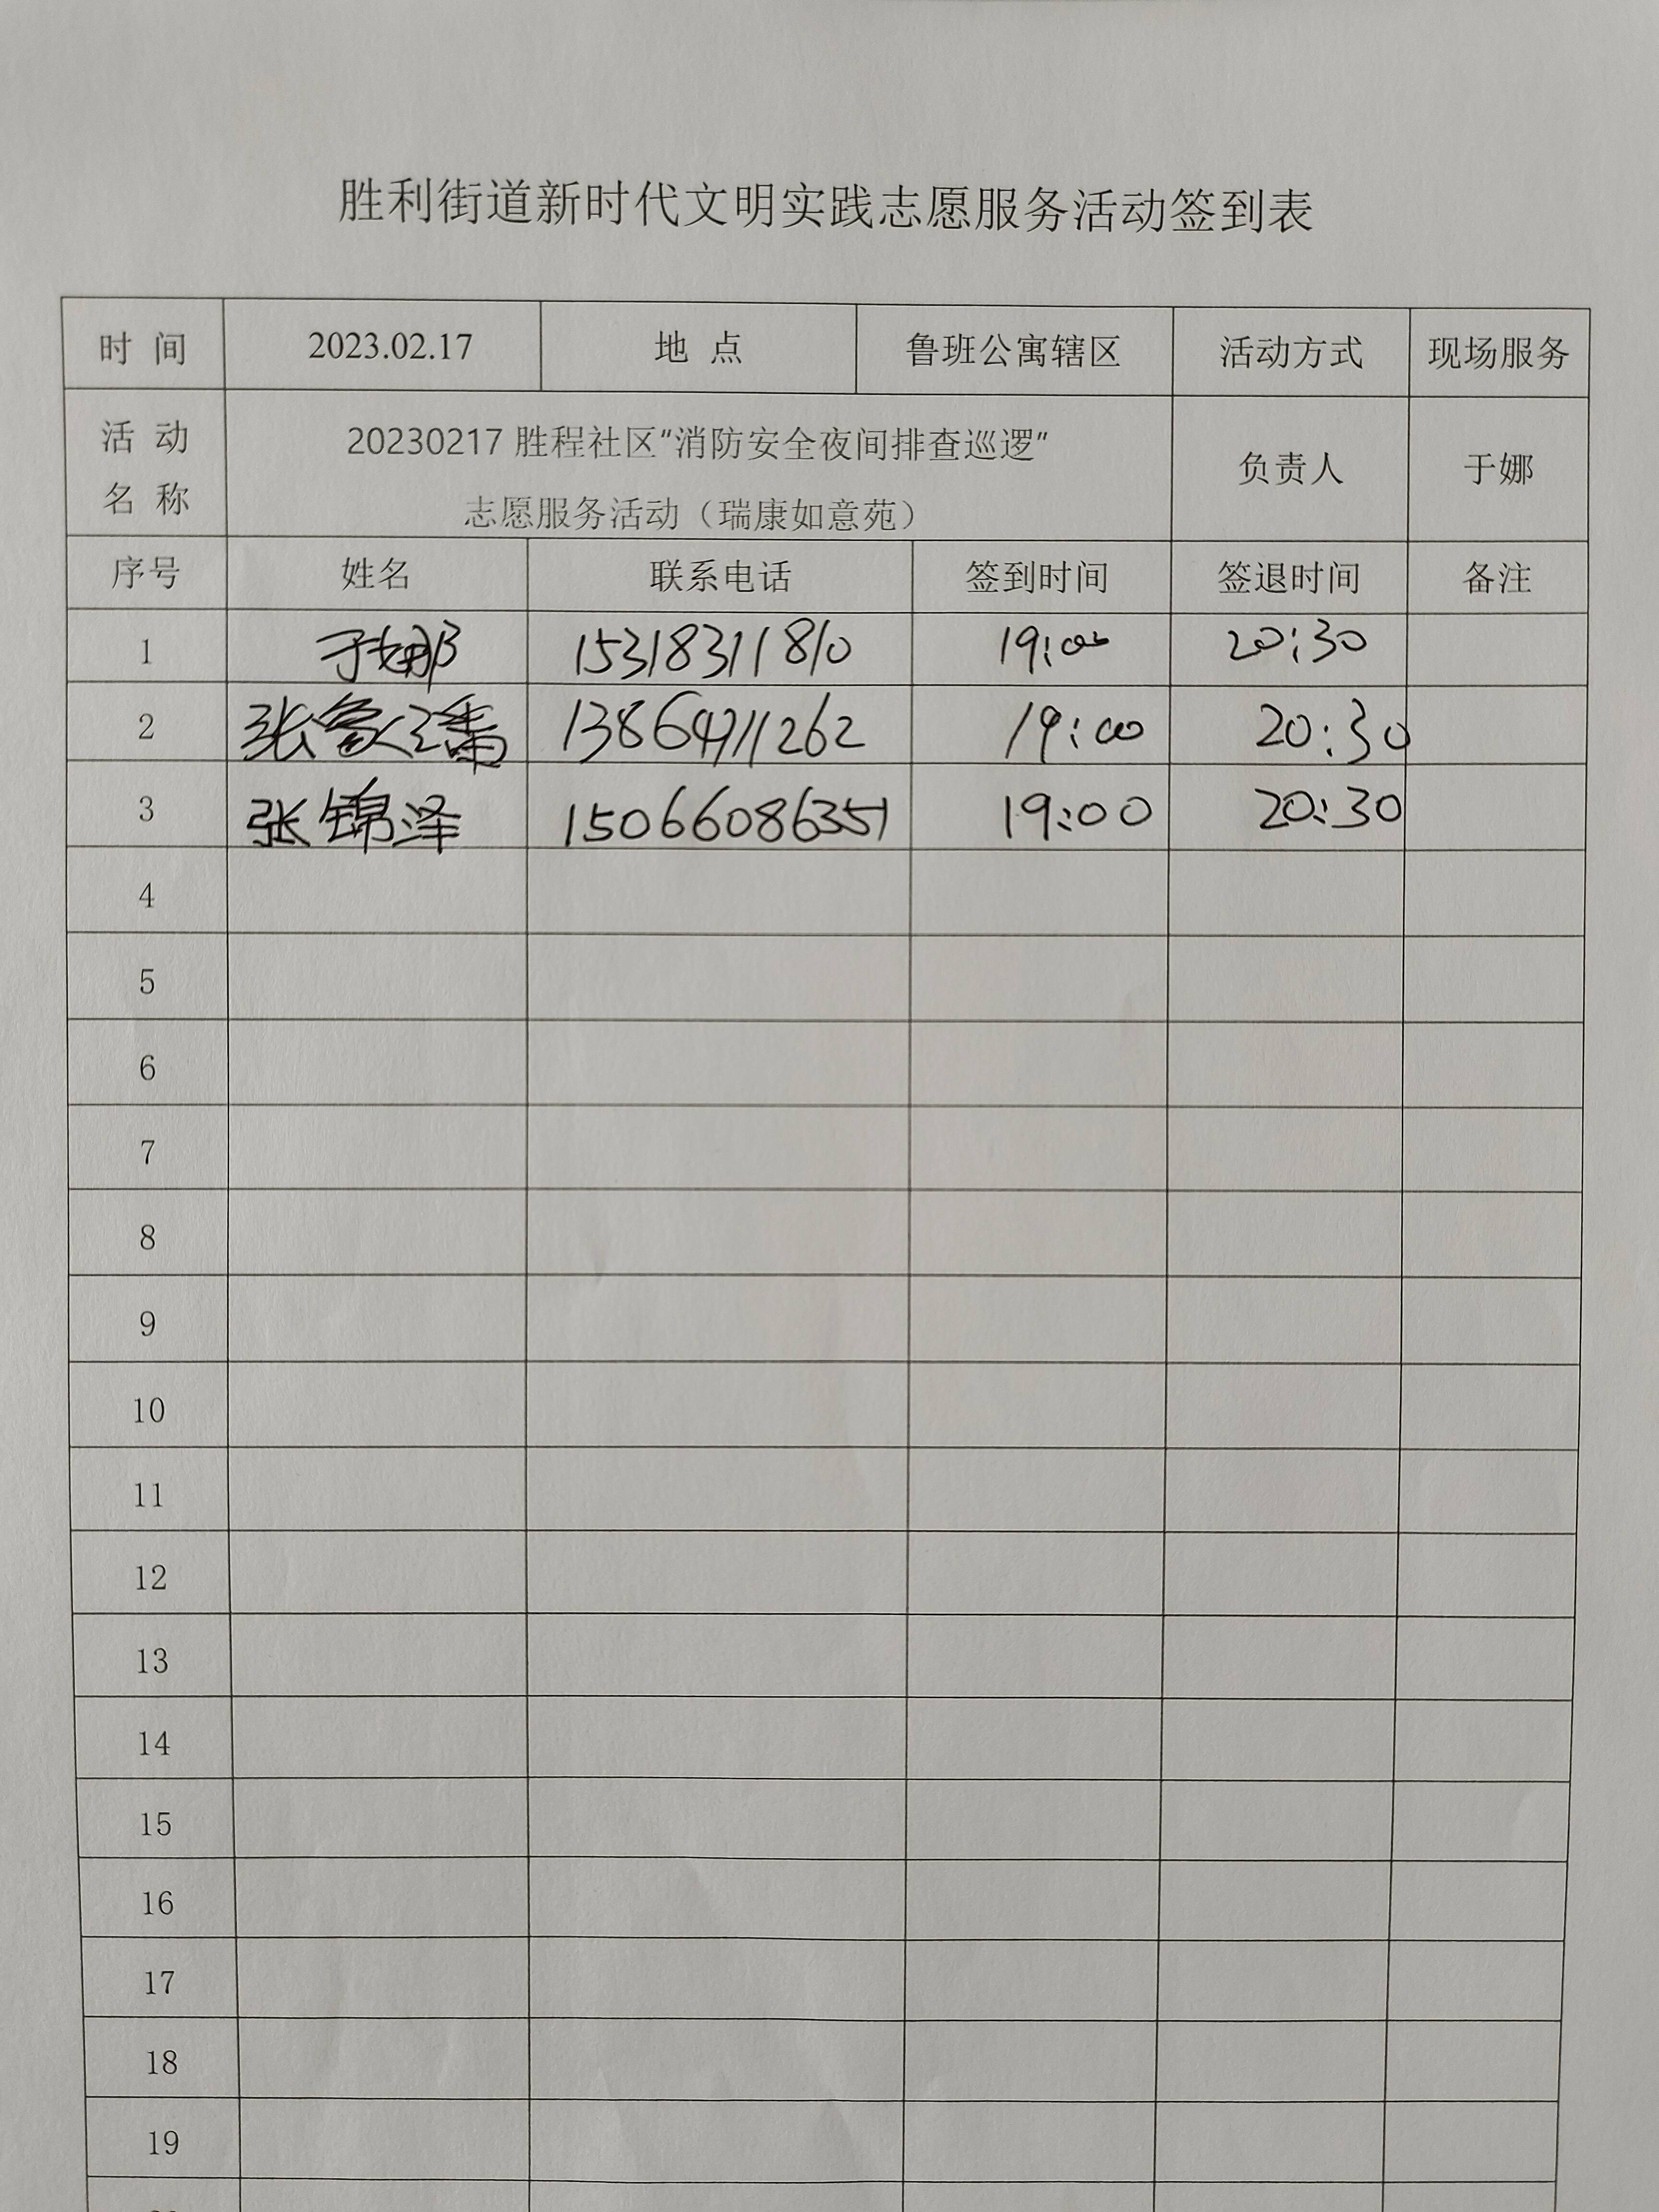 胜利街道新时代文明实践志愿服务活动签到表
时 间 2023.02.17 地 点 鲁班公寓辖区 活动方式 现场服务
活 动
名 称
20230217 胜程社区“消防安全夜间排查巡逻”
志愿服务活动（瑞康如意苑）
负责人 于娜
序号 姓名 联系电话 签到时间 签退时间 备注
1 于娜 15318311810 19:00 20:30
2 张 19:00 20:30
3 张锦泽 15066086351 19:00 20:30
4
5
6
7
8
9
10
11
12
13
14
15
16
17
18
19